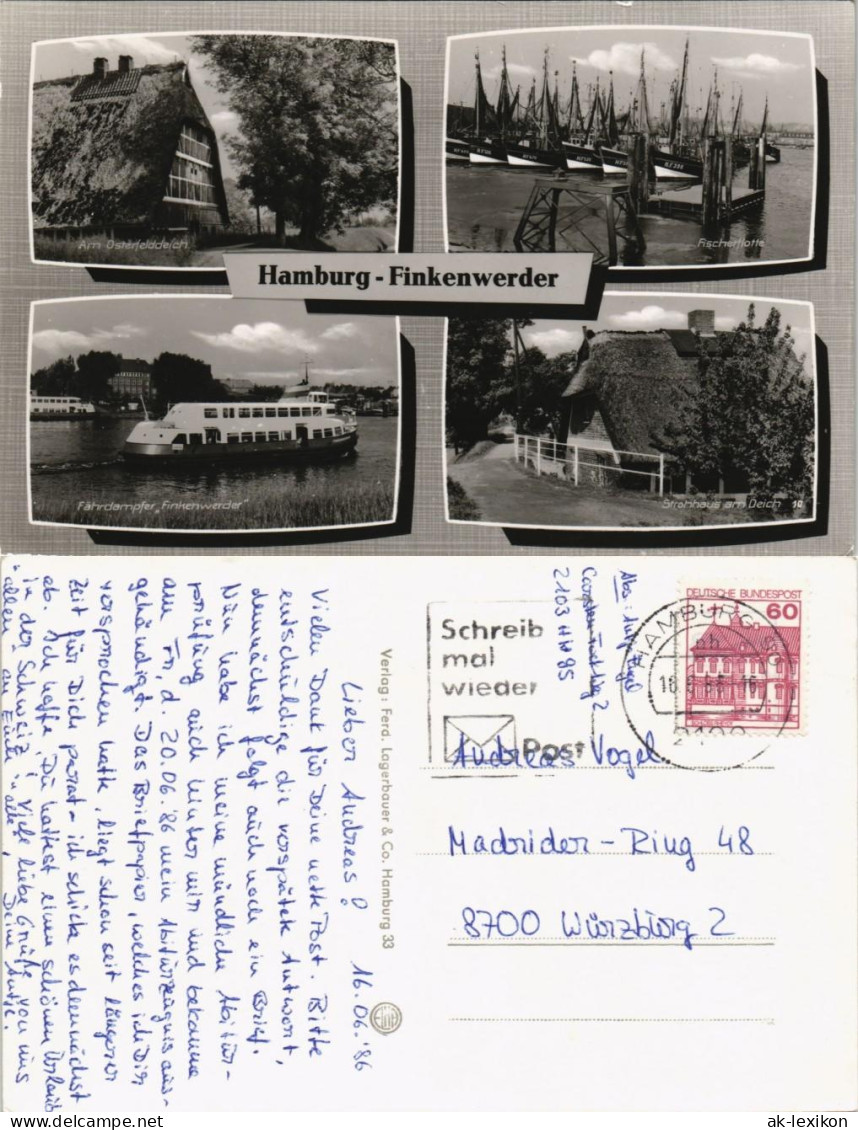 Am Osterfelddeich
Fischerflotte
Hamburg - Finkenwerder
Fährdampfer „Finkenwerder"
Strohhaus am Deich 10
Lieber Andreas! 16.06.'86
Vielen Dank für Deine nette Post. Bitte
entschuldige die verspätete Antwort,
demnächst folgt auch noch ein Brief.
Nun habe ich meine mündliche Abitur-
prüfung auch hinter mir und bekomme
am Fr, d. 20.06.'86 mein Abiturzeugnis aus-
gehändigt. Das Briefpapier, welches ich Dir
versprochen hatte, liegt schon seit längerer
Zeit für Dich parat - ich schicke es demnächst
ab. Ich hoffe, Du hattest einen schönen Urlaub
in der Schweiz! Viele liebe Grüße von uns
allen an Euch alle, Deine Antje.
Verlag: Ferd. Lagerbauer & Co. Hamburg 33
Abs.: Antje
2103 HH 95
Schreib
mal
wieder
Post
DEUTSCHE BUNDESPOST
60
HAMBURG
2100
Andreas Vogel
Madrider - Ring 48
8700 Würzburg 2
ak-lexikon